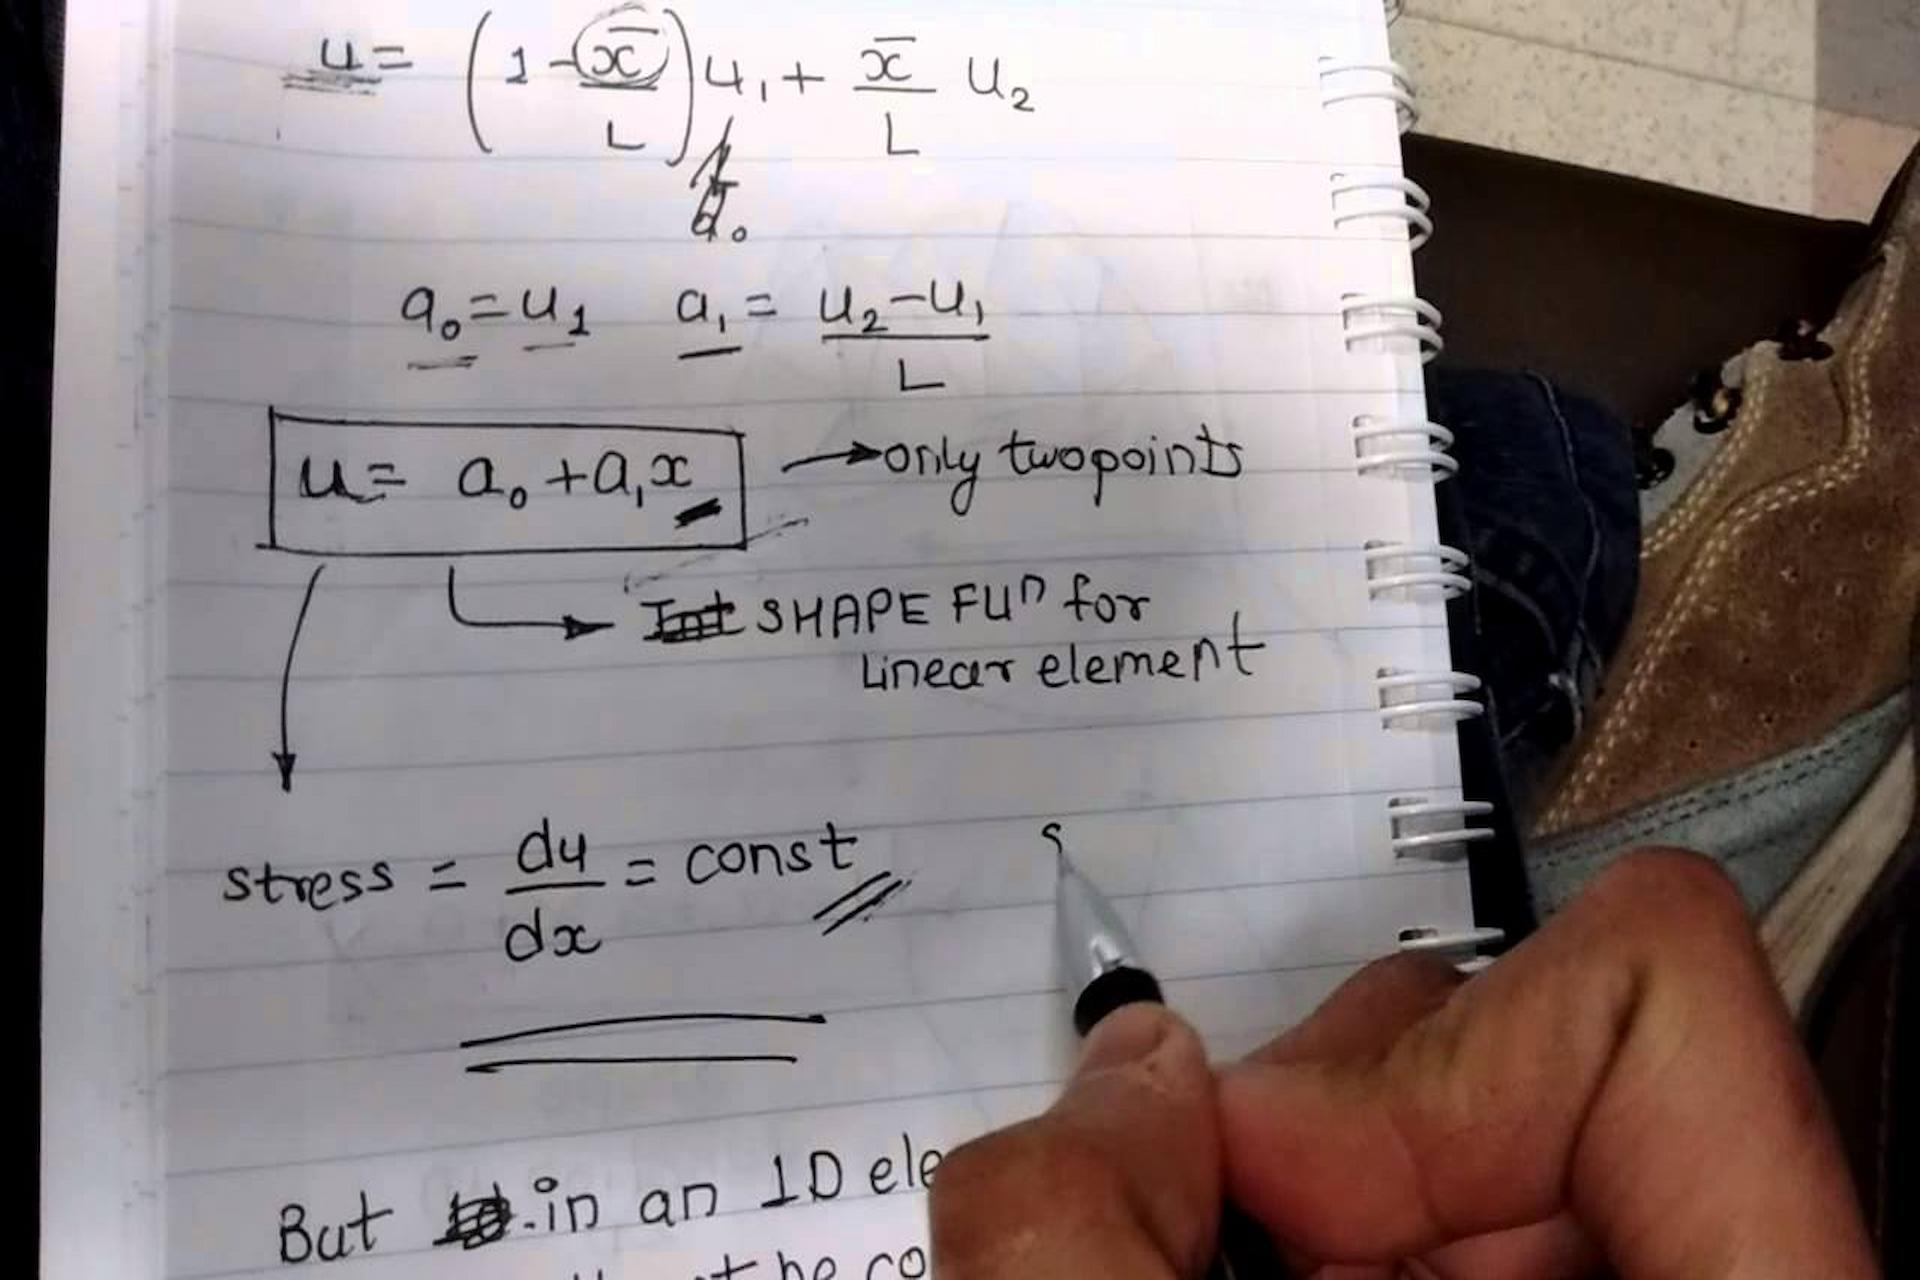 u = (1 - x̄/L) u₁ + x̄/L u₂
a₀
a₀ = u₁ a₁ = (u₂ - u₁)/L
u = a₀ + a₁x → only two points
SHAPE FUⁿ for
Linear element
stress = du/dx = const
s
But in an 1D ele
be co